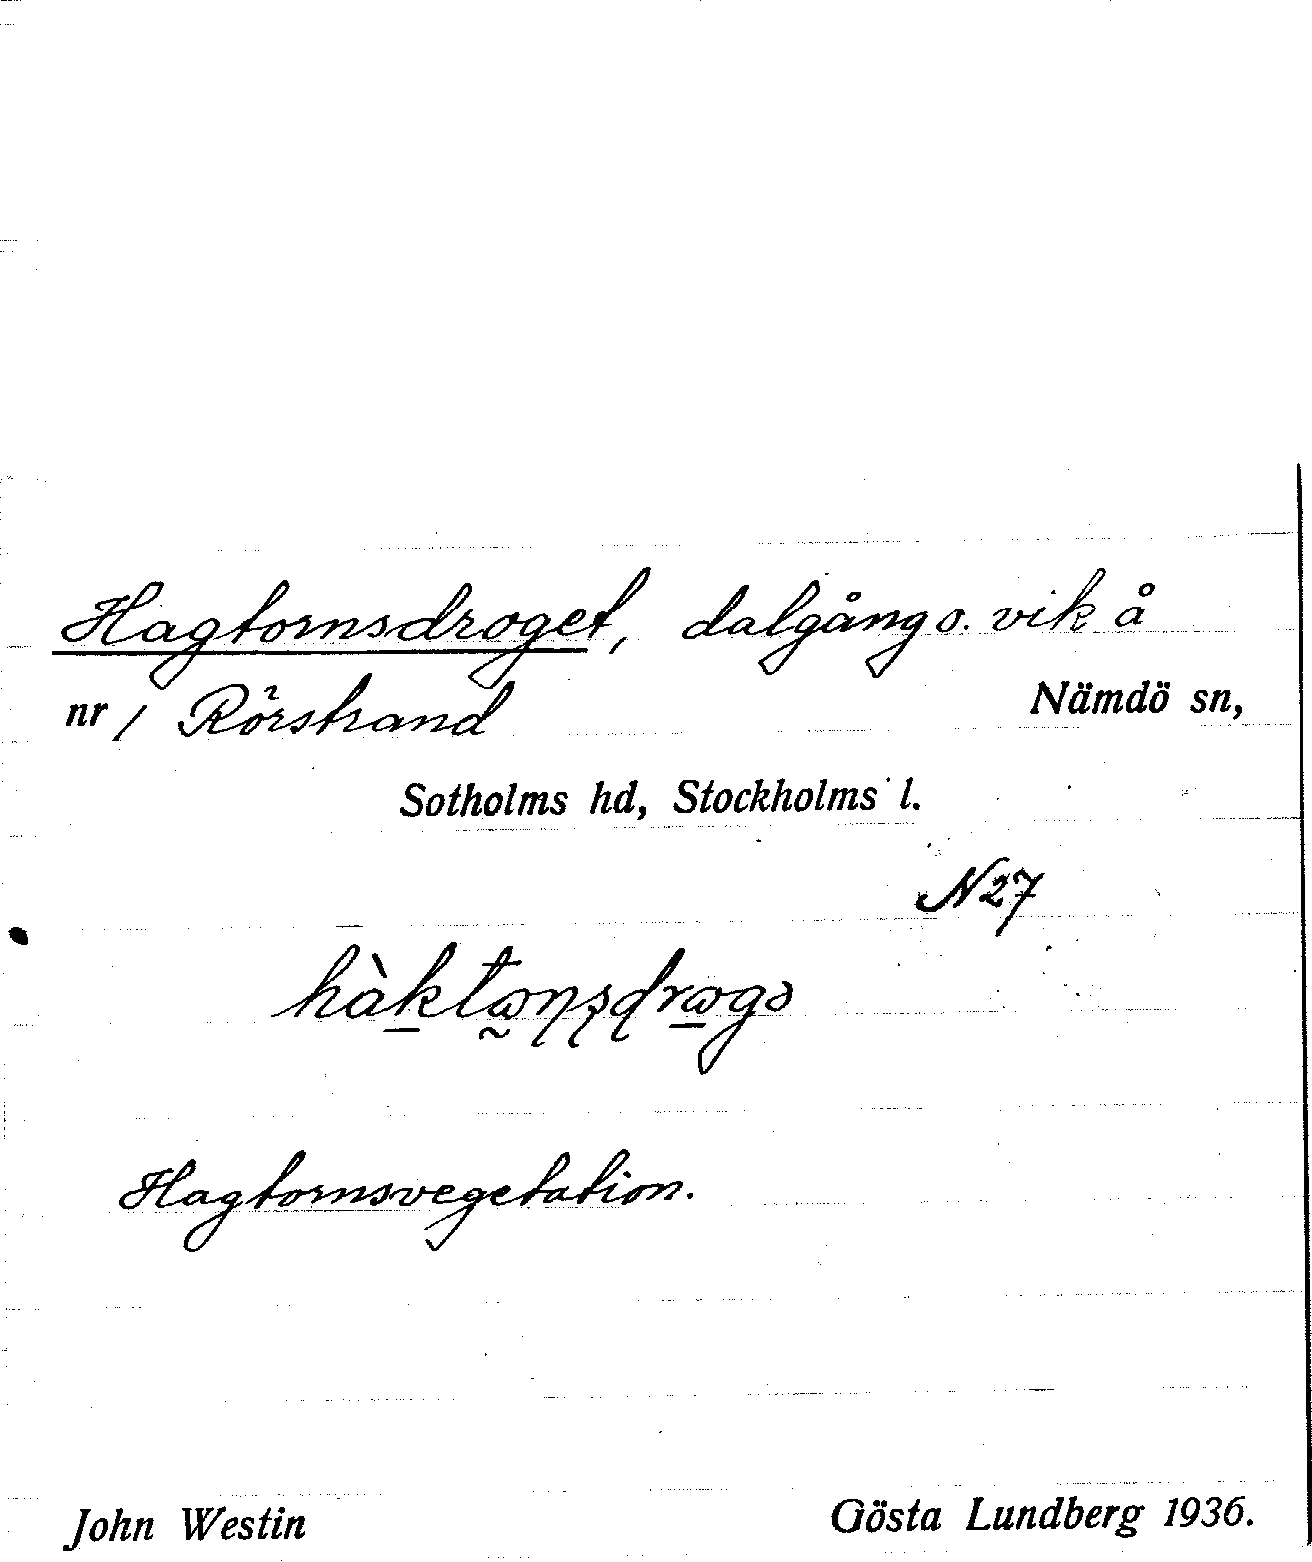 Hagtornsdroget, dalgång o. vik å
nr 1 Rörstrand Nämdö sn,
Sotholms hd, Stockholms l.
N27
Hagtornsvegetation.
John Westin Gösta Lundberg 1936.